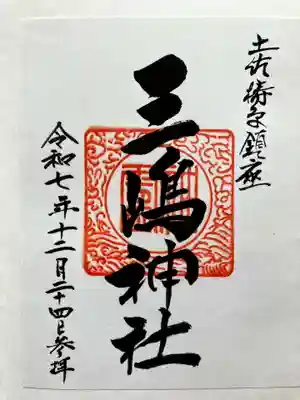 土佐梼原鎮座
三嶋神社
令和七年十二月二十四日参拝